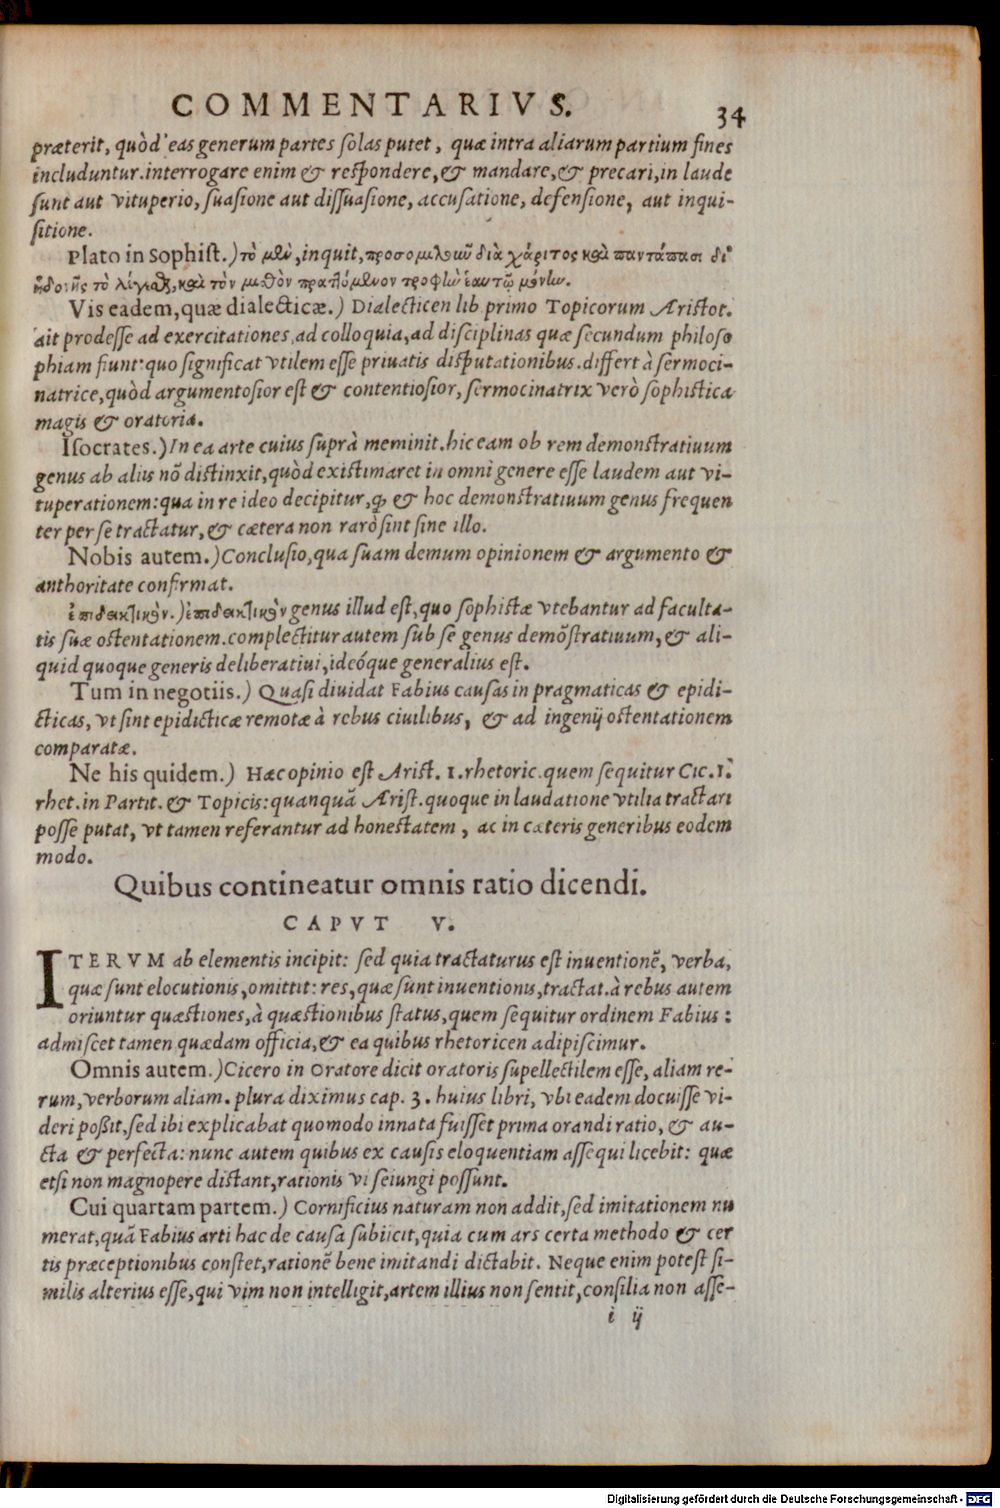 COMMENTARIVS. 34
præterit, quòd eas generum partes solas putet, quæ intra aliarum partium fines
includuntur.interrogare enim & respondere,& mandare,& precari,in laude
sunt aut vituperio, suasione aut dissuasione, accusatione, defensione, aut inqui-
sitione.
Plato in Sophist.) τὸ μὲν, inquit, προσομιλοῦν διὰ χάριτος καὶ παντάπασι δι'
ἡδονῆς τὸ λέγεις, καὶ τὸν μισθὸν πρατίομενον τροφὴν ἑαυτῷ μόνον.
Vis eadem,quæ dialecticæ.) Dialecticen lib primo Topicorum Aristot.
ait prodesse ad exercitationes,ad colloquia,ad disciplinas quæ secundum philoso
phiam fiunt:quo significat vtilem esse priuatis disputationibus.differt à sermoci-
natrice,quòd argumentosior est & contentiosior, sermocinatrix verò sophistica
magis & oratoria.
Isocrates.)In ea arte cuius suprà meminit.hic eam ob rem demonstratiuum
genus ab aliis nō distinxit,quòd existimaret in omni genere esse laudem aut vi-
tuperationem:qua in re ideo decipitur,ꝙ & hoc demonstratiuum genus frequen
ter per se tractatur,& cætera non rarò sint sine illo.
Nobis autem.)Conclusio,qua suam demum opinionem & argumento &
authoritate confirmat.
ἐπιδεικτικὸν.)ἐπιδεικτικὸν genus illud est,quo sophistæ vtebantur ad faculta-
tis suæ ostentationem.complectitur autem sub se genus demōstratiuum,& ali-
quid quoque generis deliberatiui,ideóque generalius est.
Tum in negotiis.) Quasi diuidat Fabius causas in pragmaticas & epidi-
cticas, vt sint epidicticæ remotæ à rebus ciuilibus, & ad ingenij ostentationem
comparatæ.
Ne his quidem.) Hæc opinio est Arist. 1.rhetoric.quem sequitur Cic.1.
rhet.in Partit.& Topicis:quanquā Arist.quoque in laudatione vtilia tractari
posse putat, vt tamen referantur ad honestatem, ac in cæteris generibus eodem
modo.
Quibus contineatur omnis ratio dicendi.
CAPVT V.
ITERVM ab elementis incipit: sed quia tractaturus est inuentionē, verba,
quæ sunt elocutionis,omittit:res,quæ sunt inuentionis,tractat.à rebus autem
oriuntur quæstiones,à quæstionibus status,quem sequitur ordinem Fabius:
admiscet tamen quædam officia,& ea quibus rhetoricen adipiscimur.
Omnis autem.)Cicero in Oratore dicit oratoris supellectilem esse, aliam re-
rum,verborum aliam. plura diximus cap. 3. huius libri, vbi eadem docuisse vi-
deri poßit,sed ibi explicabat quomodo innata fuisset prima orandi ratio, & au-
cta & perfecta: nunc autem quibus ex causis eloquentiam assequi licebit: quæ
etsi non magnopere distant,rationis vi seiungi possunt.
Cui quartam partem.) Cornificius naturam non addit,sed imitationem nu
merat,quā Fabius arti hac de causa subiicit,quia cum ars certa methodo & cer
tis præceptionibus constet,rationē bene imitandi dictabit. Neque enim potest si-
milis alterius esse,qui vim non intelligit,artem illius non sentit,consilia non asse-
i ij
Digitalisierung gefördert durch die Deutsche Forschungsgemeinschaft - DFG